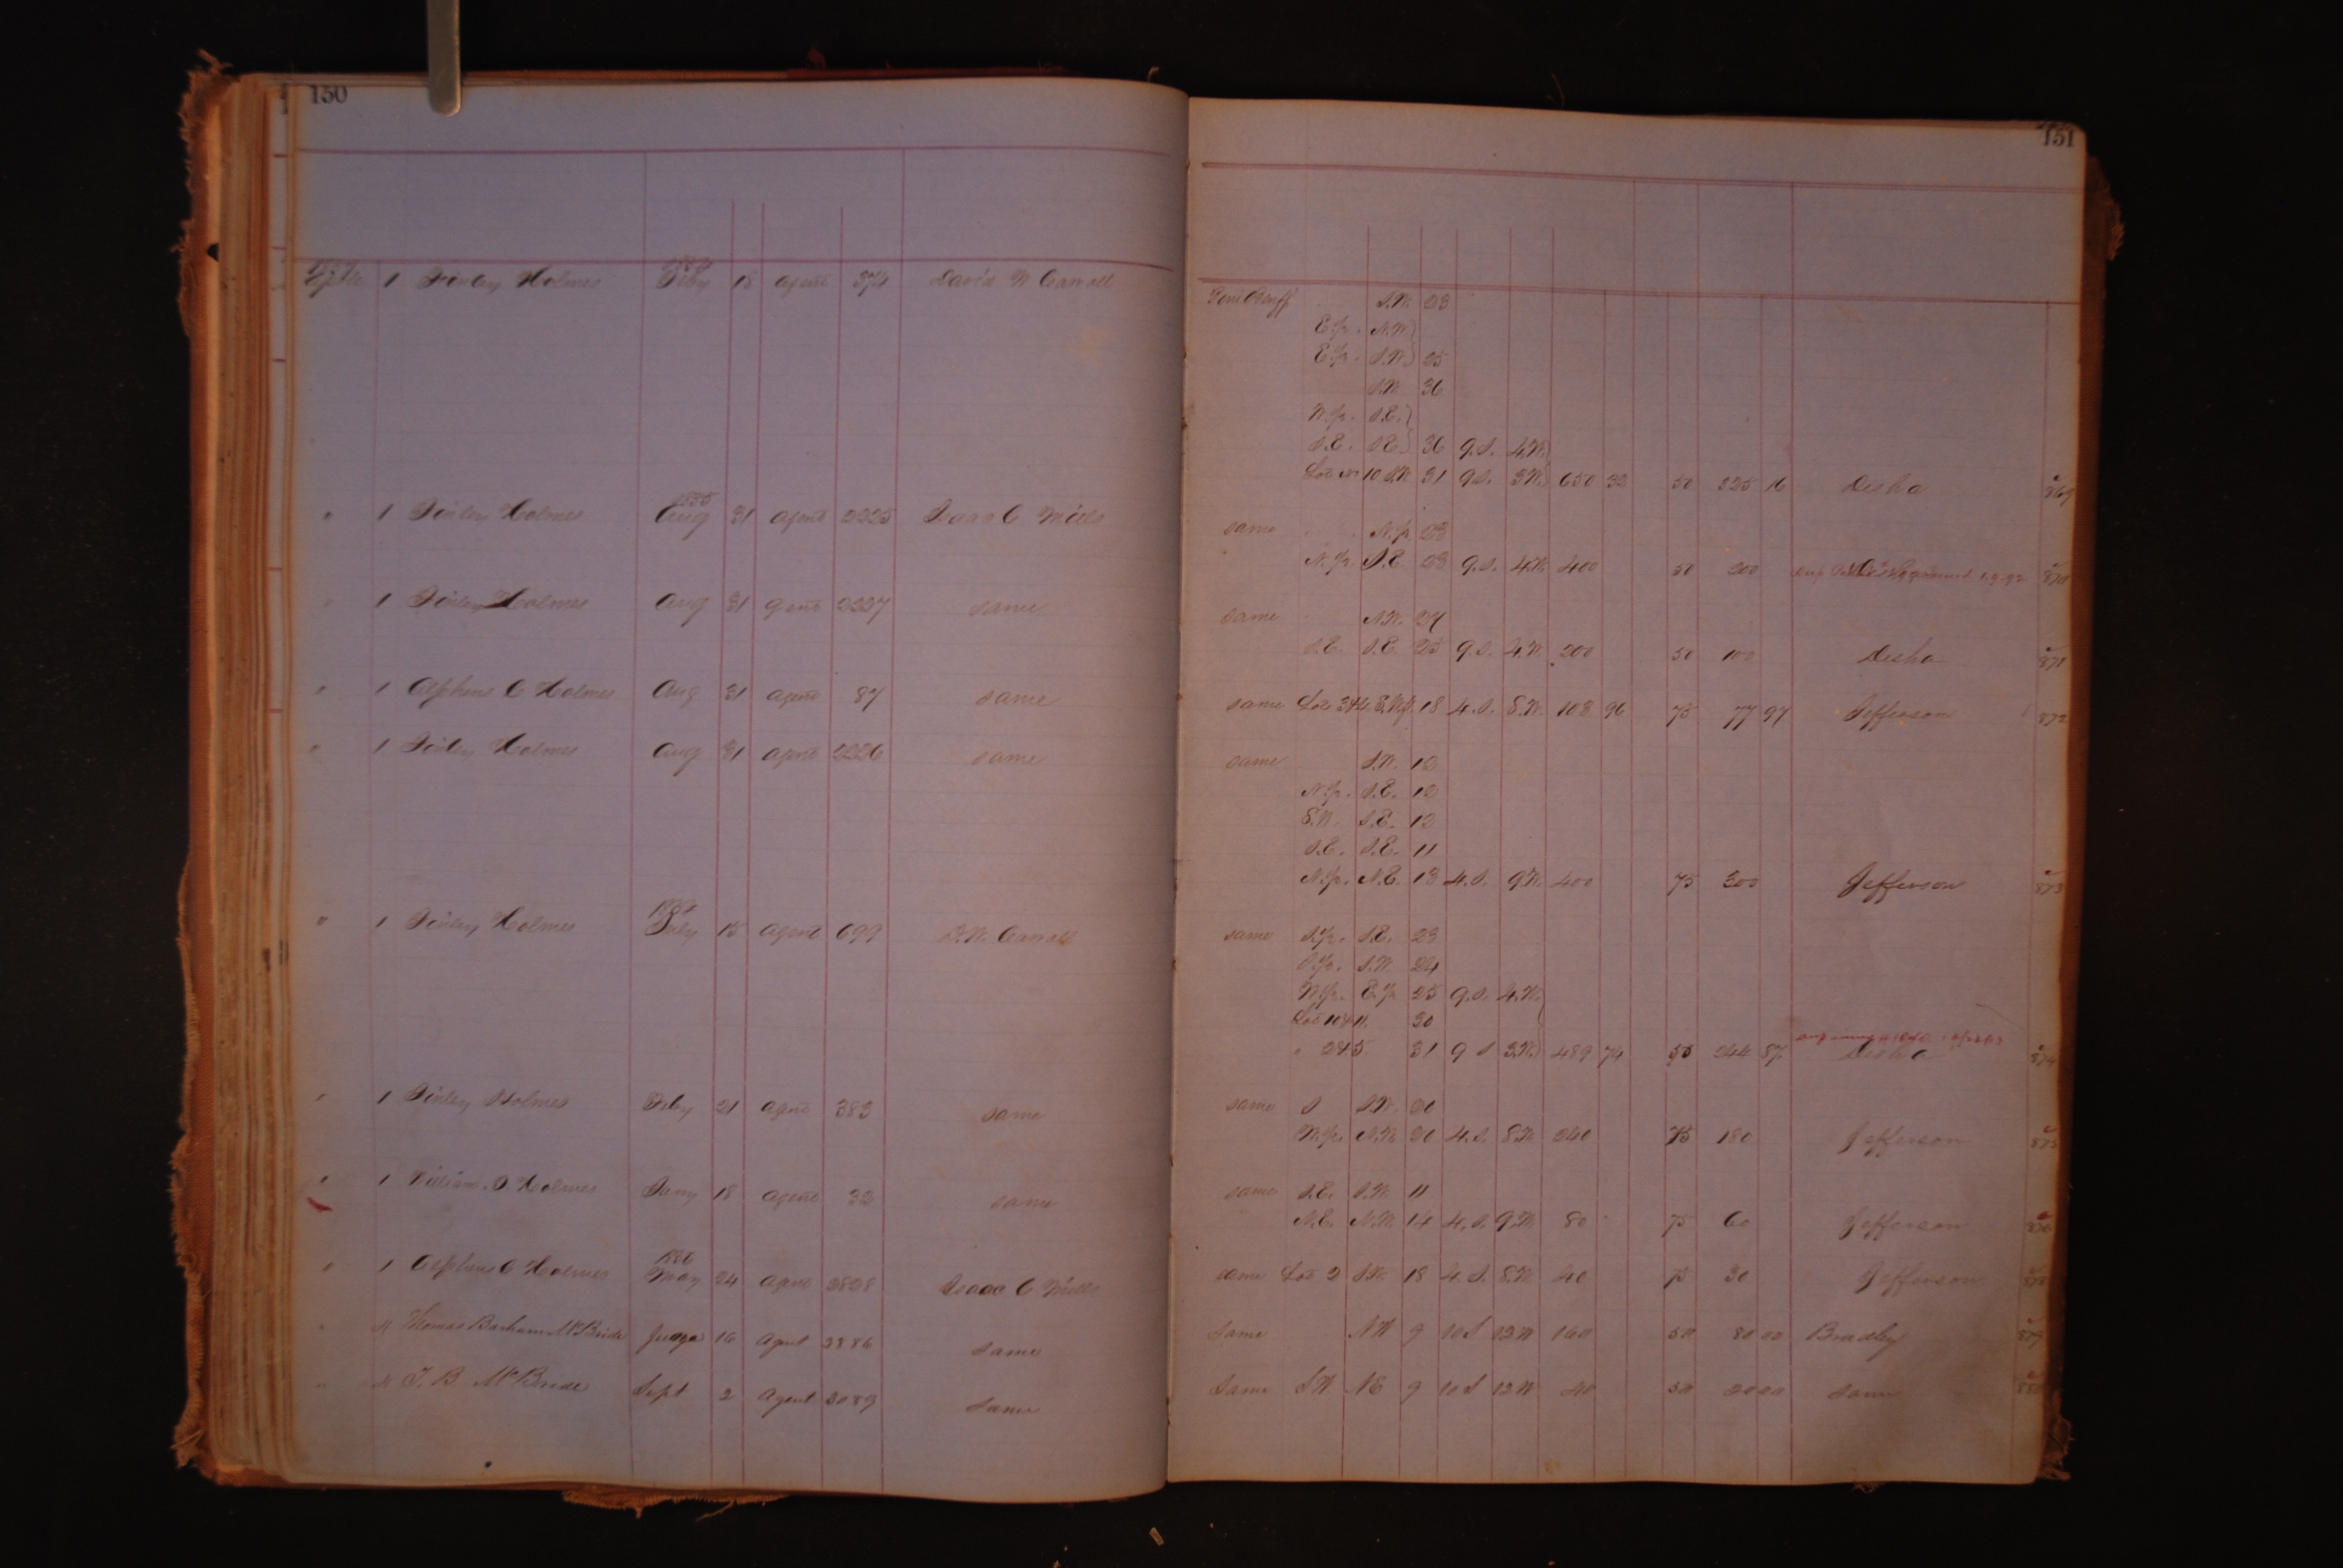 150
1 Finley Holmes 15 agent 374 David W Carroll
1855
" 1 Finley Holmes Aug 31 agent 2225 Isaac C Mills
" 1 Finley Holmes Aug 31 agent 2227 same
" 1 Alpheus C Holmes Aug 31 agent 87 same
" 1 Finley Holmes Aug 31 agent 2226 same
" 1 Finley Holmes 15 agent 699 D.W. Carroll
" 1 Finley Holmes Feby 21 agent 383 same
" 1 William Holmes 18 agent 33 same
" 1 Alpheus C Holmes May 24 agent 2828 Isaac C Mills
" Thomas Barham McBride 16 Agent 2886 same
" T. B. McBride Sept 2 Agent 3089 same
151
Pine Bluff S.W. 23
E.½. N.W.
E.½. S.W. 25
S.W. 36
W.½. S.E.
S.E. S.E. 36 9.S. 4.W.
Lot 10 S.W. 31 9.S. 3.W. 650 32 50 325 16 Desha 869
same N.½ 23
N.½. S.E. 23 9.S. 4.W. 400 50 200 870
same N.W. 24
S.E. S.E. 25 9.S. 4.W. 200 50 100 Desha 871
same Lots 3&4 18 4.S. 8.W. 108 96 75 77 97 Jefferson 872
same S.W. 12
N.½. S.E. 12
S.W. S.E. 12
S.E. S.E. 11
N.½. N.E. 13 4.S. 9.W. 400 75 300 Jefferson 873
same S.½. S.E. 23
S.½. S.W. 24
W.½. E.½ 25 9.S. 4.W.
Lots 10&11. 30
" 2&5 31 9 S 3.W. 489 74 50 244 87 Desha 874
same S S.W. 20
W.½. N.W. 20 4.S. 8.W. 240 75 180 Jefferson 875
same S.E. S.W. 11
N.E. N.W. 14 4.S. 9.W. 80 75 60 Jefferson 876
same Lot 2 S.W. 18 4.S. 8.W. 40 75 30 Jefferson
Same NW 9 10S 12W 160 50 80 00 Bradley 879
Same SW NE 9 10S 12W 40 50 20 00 Same 880